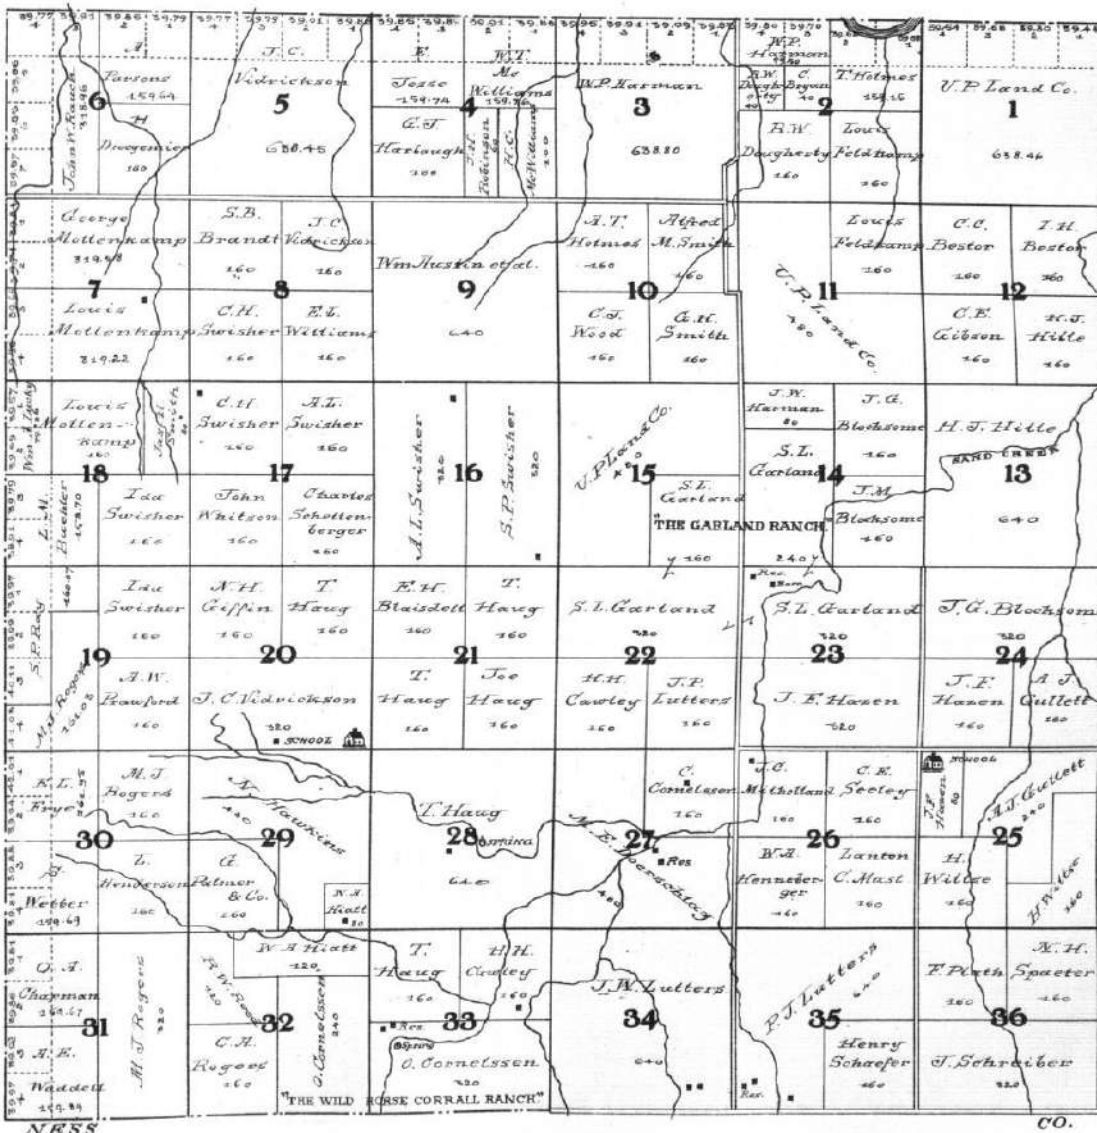 A.
Parsons
159.64
6
John W. Rauch
318.96
H
Droegemier
160
J.C.
Vidrickson
5
638.45
E
Jesse
159.74
4
W.T.
Mc
Williams
159.76
G.J.
Harbaugh
200
J.H.
Robinson
60
H.C.
McWilliams
100
W.P. Harman
3
638.80
W.P.
Harman
R.W.
Dougherty
C.
Bryan
40
2
T. Holmes
159.16
R.W.
Dougherty
160
Louis
Feldkamp
160
U.P. Land Co.
1
638.46
George
Mollenkamp
319.58
7
Louis
Mollenkamp
319.22
S.B.
Brandt
160
J.C.
Vidrickson
160
8
C.H.
Swisher
160
E.L.
Williams
160
Wm Austin et al.
9
640
A.T.
Holmes
160
Alfred
M. Smith
160
10
C.J.
Wood
160
G.H.
Smith
160
U.P. Land Co.
480
11
Louis
Feldkamp
160
C.C.
Bestor
160
I.H.
Bestor
160
12
C.E.
Gibson
160
H.J.
Hille
160
Louis
Mollen-
kamp
160
Smith
80
18
L.M.
Buehler
158.70
Ida
Swisher
160
C.H.
Swisher
160
A.L.
Swisher
160
17
John
Whitson
160
Charles
Schottenberger
160
A.L. Swisher
320
16
S.P. Swisher
320
U.P. Land Co.
480
15
S.L.
Garland
"THE GARLAND RANCH."
160
J.W.
Harman
80
J.G.
Blocksome
160
S.L.
Garland
14
J.M
Blocksome
160
240
H.J. Hille
SAND CREEK
13
640
S.P. Ray
160.07
Ida
Swisher
160
19
M.J. Rogers
161.03
A.W.
Crawford
160
N.H.
Giffin
160
T.
Haug
160
20
J.C. Vidrickson
320
SCHOOL
E.H.
Blaisdell
160
T.
Haug
160
21
T.
Haug
160
Joe
Haug
160
S.L. Garland
320
22
H.H.
Cawley
160
J.P.
Lutters
160
Res.
Barn
S.L. Garland
320
23
J.F. Hazen
320
J.G. Blocksom
320
24
J.F.
Hazen
160
A J
Gullett
160
E L
Frye
M.J
Rogers
160
30
Webber
159.69
L.
Henderson
160
N. Hawkins
440
29
G
Palmer
& Co.
160
W.A
Hiatt
80
T. Haug
28
SPRING
640
C.
Cornelssen
160
M.E. Doerschlag
480
27
Res
J.C.
Milholland
160
C.E.
Seeley
160
26
W.A.
Henneberger
160
Lanton
C. Mast
160
SCHOOL
J.F
Hazen
80
A.J. Gullett
240
25
H.
Wiltse
160
H Wiltse
160
O.A.
Chapman
159.67
31
A.E.
Waddell
159.89
M.J Rogers
320
R.W. Rood
120
W A Hiatt
120
32
C.A.
Rogers
160
O. Cornelssen
240
T.
Haug
160
H.H.
Cawley
160
Res
33
Spring
O. Cornelssen
320
"THE WILD HORSE CORRALL RANCH."
J.W. Lutters
34
640
P.J. Lutters
640
35
Henry
Schaefer
160
Res.
F. Plath
160
N.H.
Spaeter
160
36
J. Schreiber
320
NESS
CO.